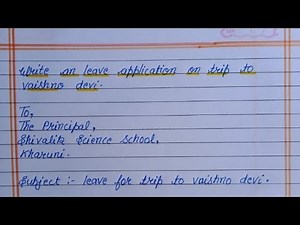 Write an leave application on trip to
vaishno devi.
To,
The Principal,
Shivalik Science School,
Kharuni.
Subject :- leave for trip to vaishno devi.